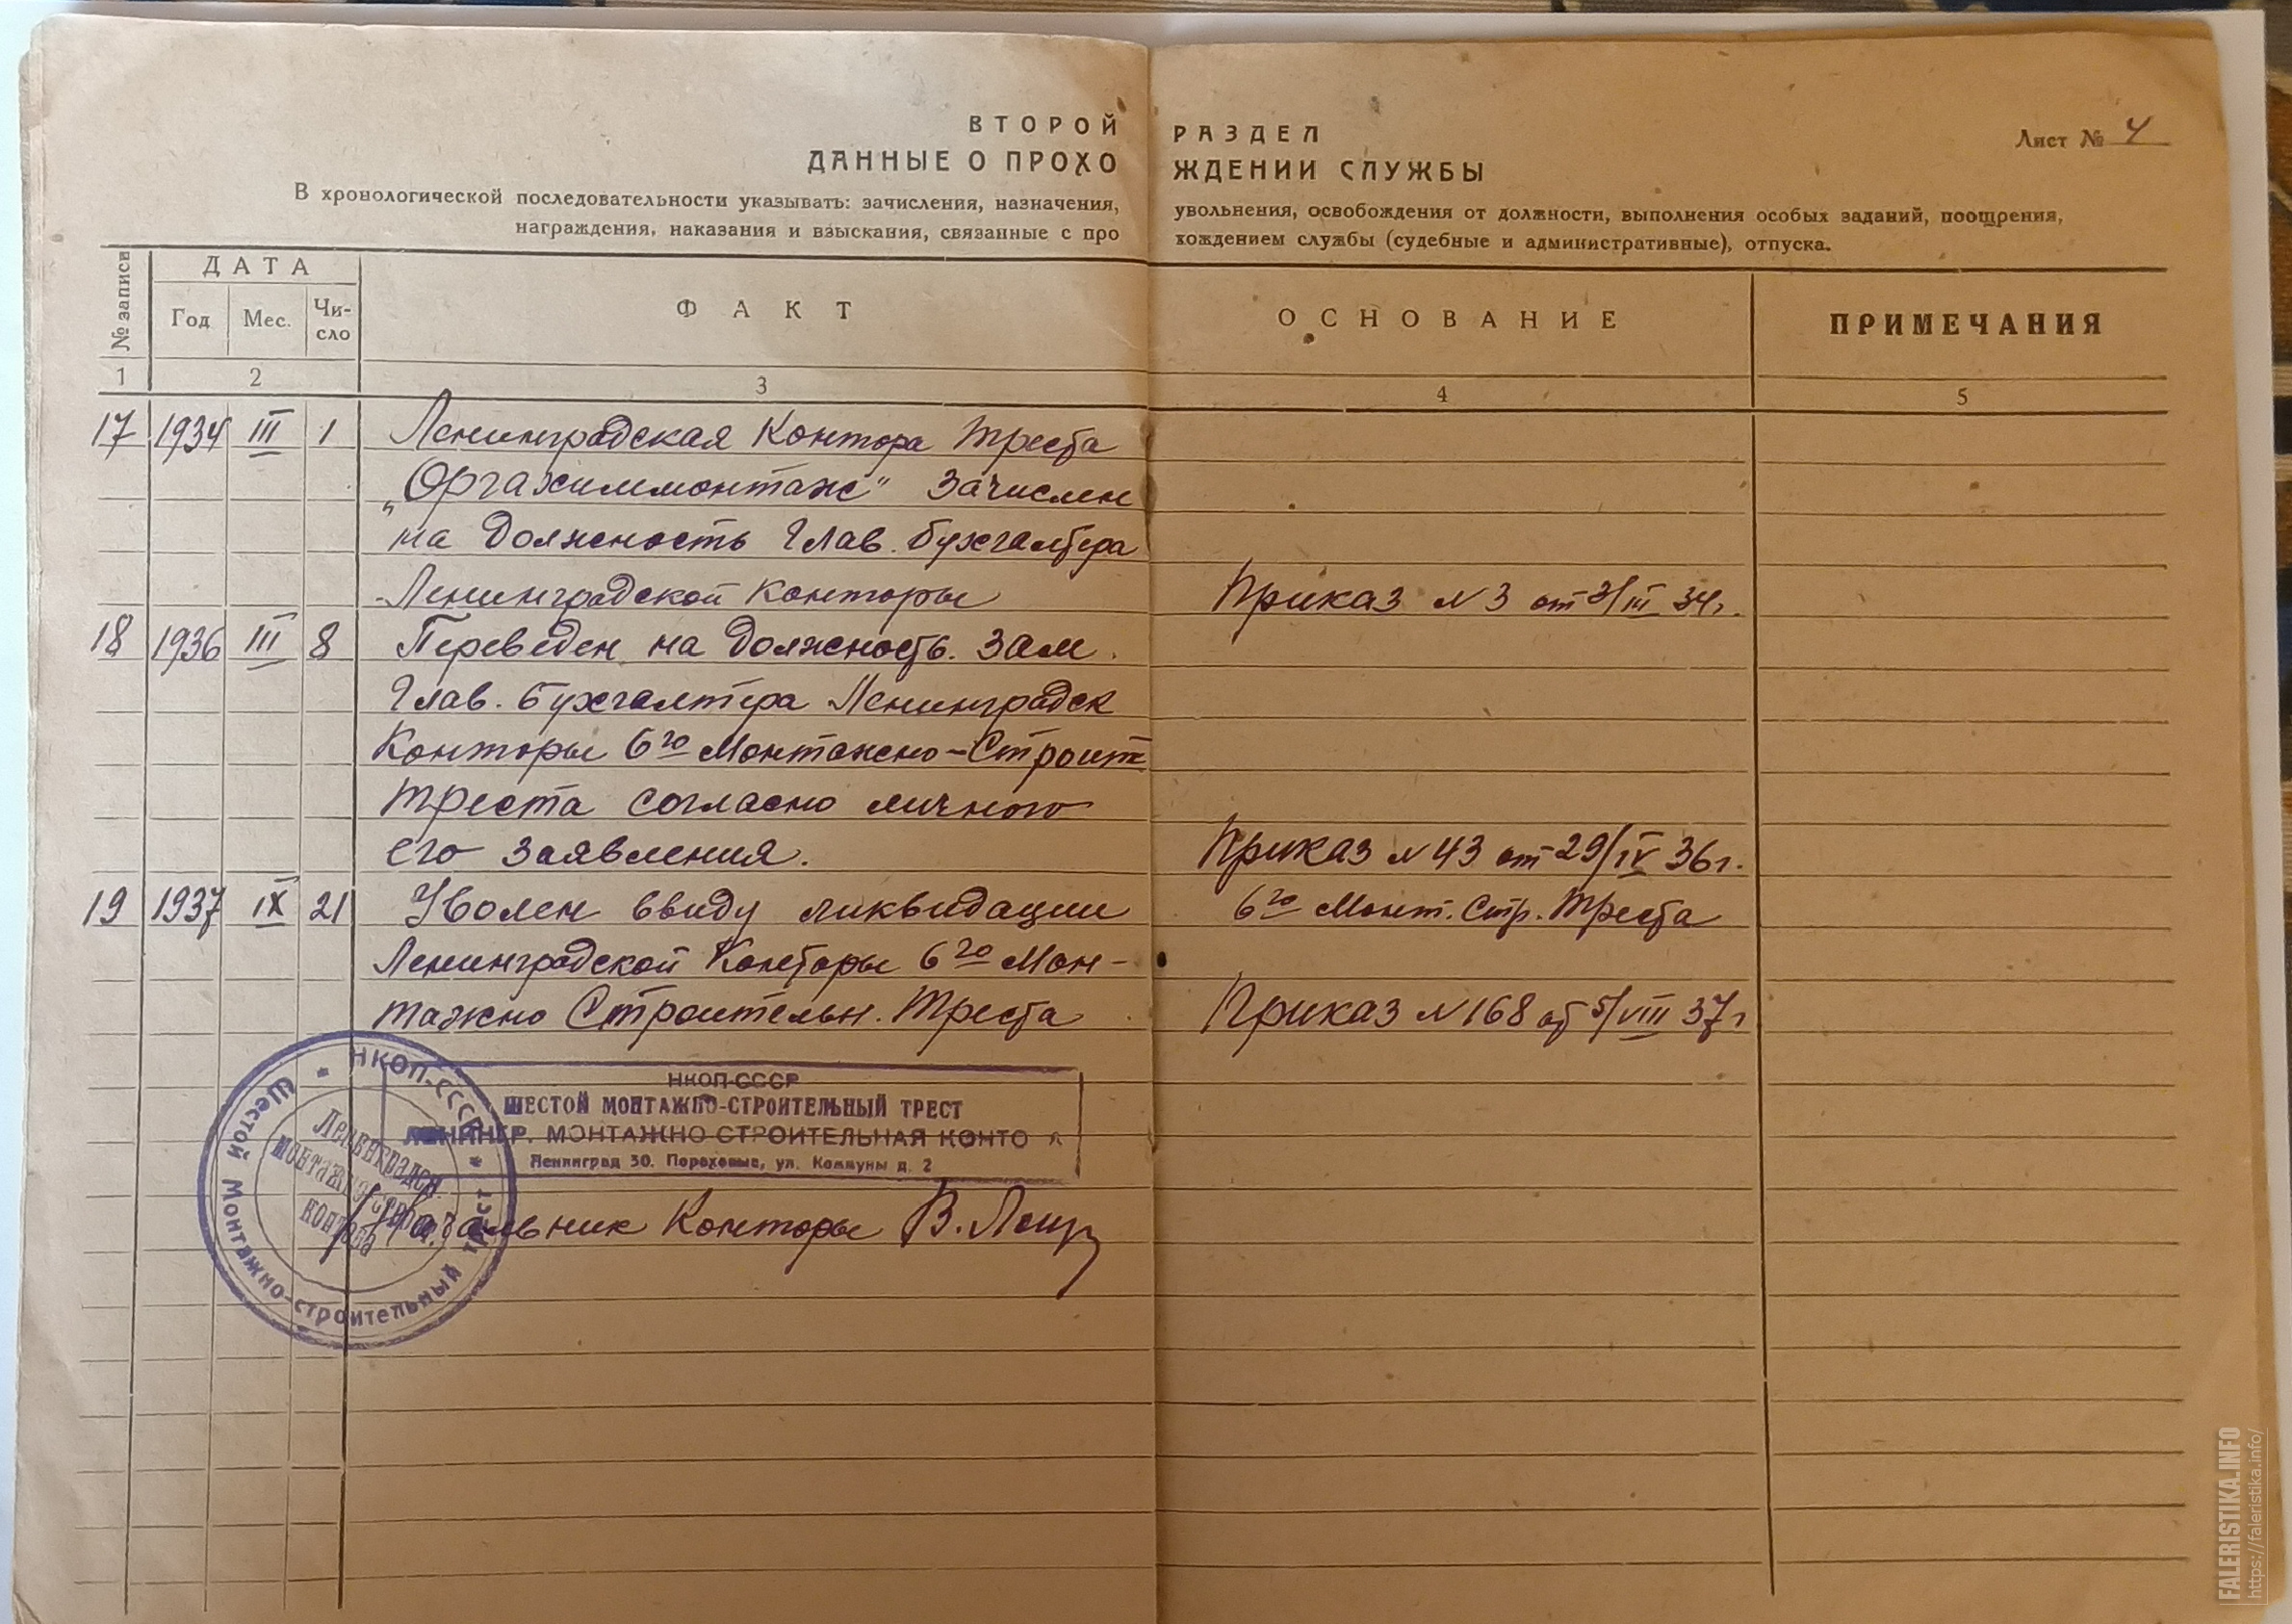 ВТОРОЙ РАЗДЕЛ
Лист № 4
ДАННЫЕ О ПРОХОЖДЕНИИ СЛУЖБЫ
В хронологической последовательности указывать: зачисления, назначения, увольнения, освобождения от должности, выполнения особых заданий, поощрения,
награждения, наказания и взыскания, связанные с прохождением службы (судебные и административные), отпуска.
№ записи ДАТА ФАКТ ОСНОВАНИЕ ПРИМЕЧАНИЯ
Год Мес. Чи-
сло
1 2 3 4 5
17 1934 III 1 Ленинградская Контора треста
„Оргахиммонтаж" зачислен
на должность Глав. бухгалтера
Ленинградской конторы Приказ N 3 от 3/III 34г.
18 1936 III 8 Переведен на должность зам.
Глав. бухгалтера Ленинградск
Конторы 6го Монтажно-Строит
треста согласно личного
его заявления. Приказ N 43 от 29/IV 36г.
19 1937 IX 21 Уволен ввиду ликвидации 6го Монт. Стр. Треста
Ленинградской Конторы 6го Мон-
тажно Строительн. Треста Приказ N 168 от 5/VIII 37г
НКОП-СССР
ШЕСТОЙ МОНТАЖНО-СТРОИТЕЛЬНЫЙ ТРЕСТ
ЛЕНИНГР. МОНТАЖНО СТРОИТЕЛЬНАЯ КОНТО А
Ленинград 30. Пороховые, ул. Коммуны д. 2
* НКОП-СССР * Шестой Монтажно-строительный трест
Ленинградск.
монтажно строит.
контора
Начальник Конторы В.
FALERISTIKA.INFO
https://faleristika.info/